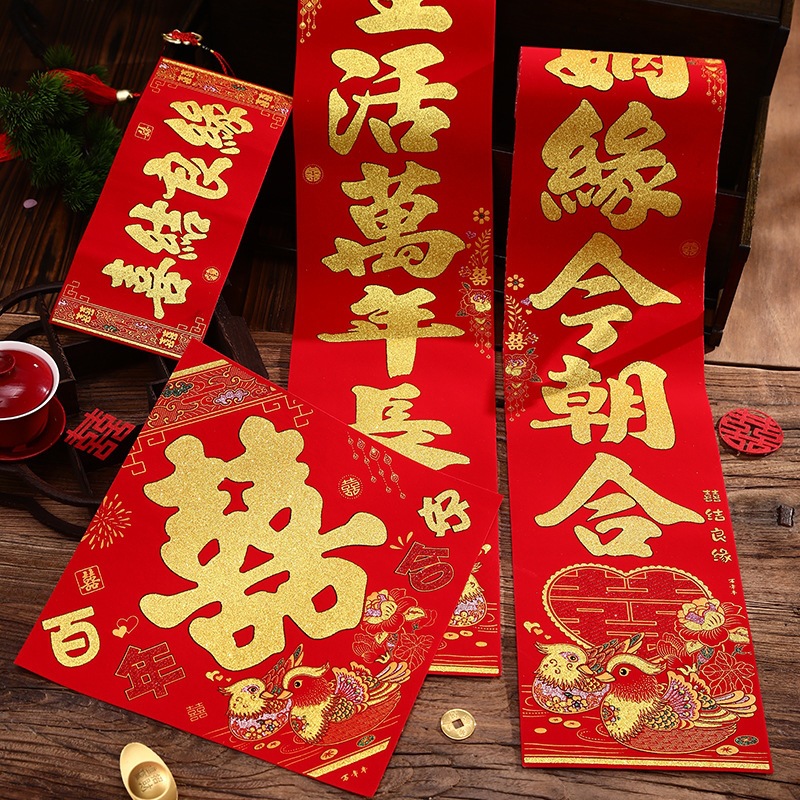 喜結良緣
活萬年長
姻緣今朝合
囍结良缘
囍
百年
好合